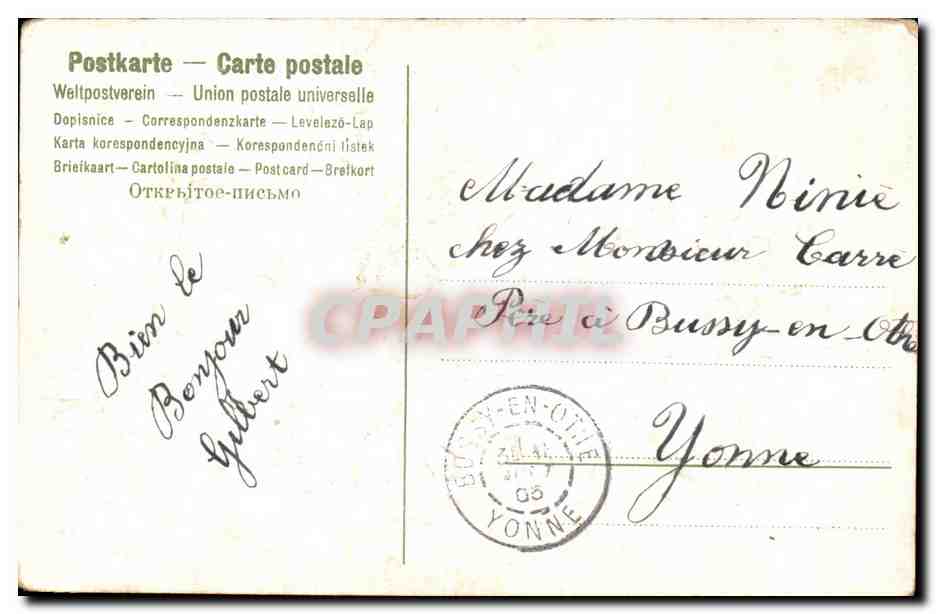 Postkarte — Carte postale
Weltpostverein — Union postale universelle
Dopisnice – Correspondenzkarte – Levelező-Lap
Karta korespondencyjna – Korespondenčni listek
Briefkaart — Cartolina postale — Post card — Brefkort
Открытое-письмо
Bien le
Bonjour
Gilbert
Madame Ninie
chez Monsieur Carré
Père à Bussy-en-Othe
Yonne
CPAPHIL
BUSSY-EN-OTHE
05
YONNE